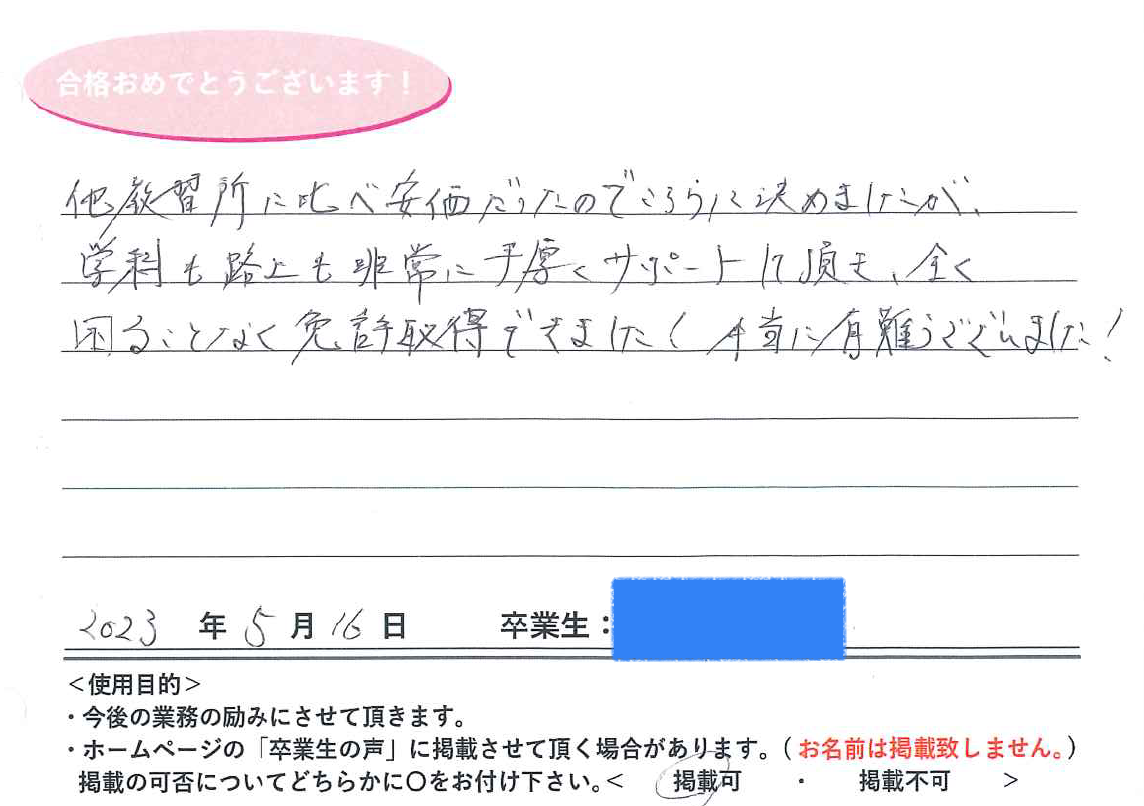 合格おめでとうございます！
他教習所に比べ安価だったのでこちらに決めましたが、
学科も路上も非常に手厚くサポートして頂き、全く
困ることなく免許取得できました！本当に有難うございました！
2023 年 5 月 16 日 卒業生：
＜使用目的＞
・今後の業務の励みにさせて頂きます。
・ホームページの「卒業生の声」に掲載させて頂く場合があります。（お名前は掲載致しません。）
掲載の可否についてどちらかに〇をお付け下さい。＜ 掲載可 ・ 掲載不可 ＞